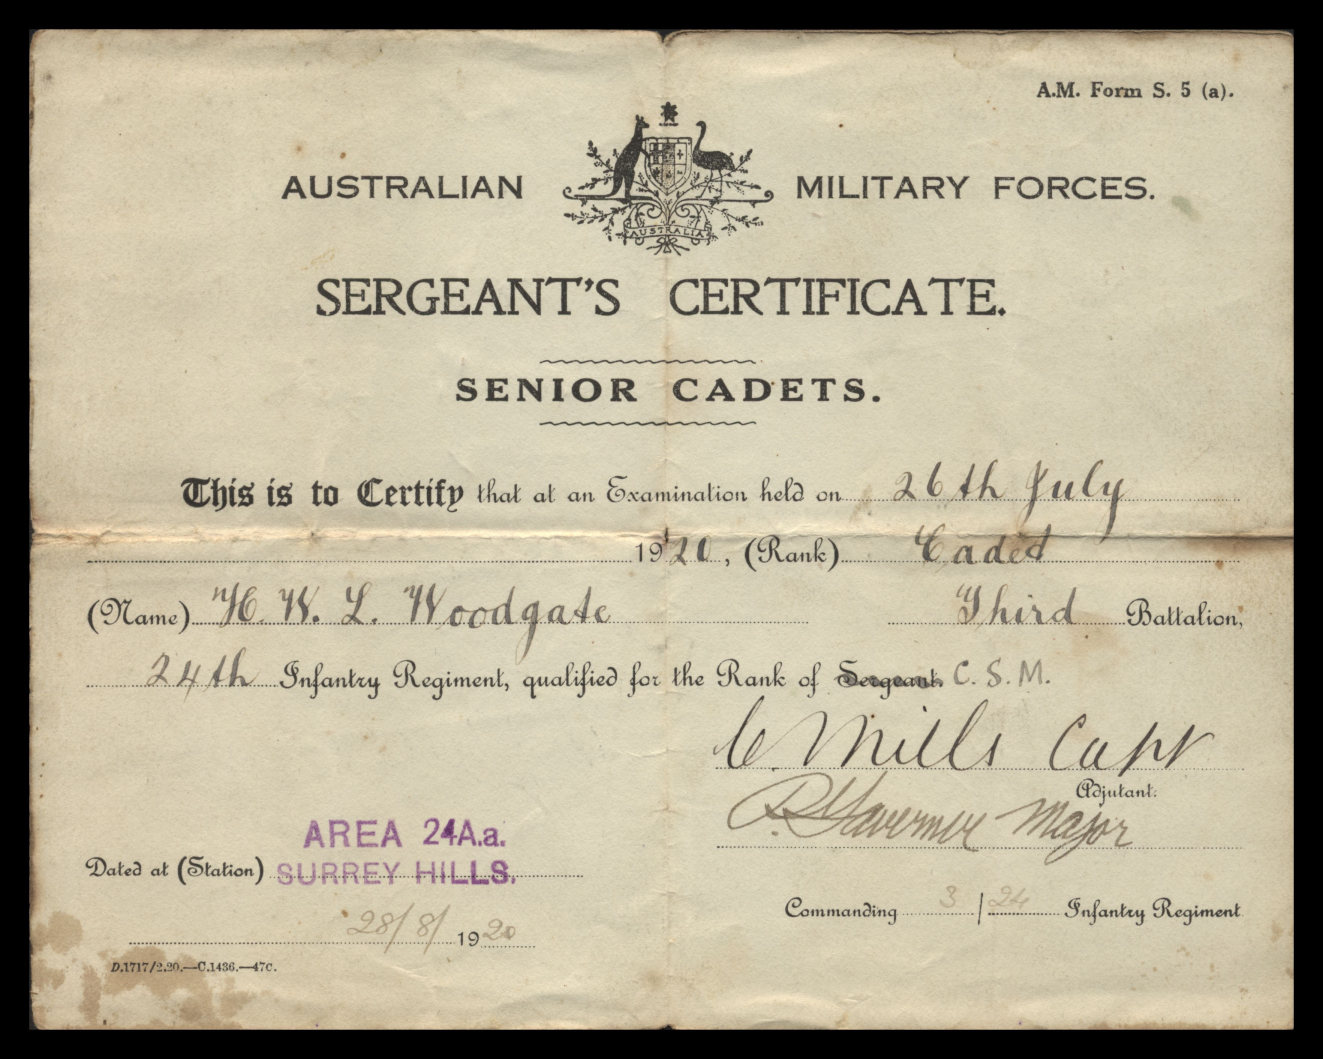 A.M. Form S. 5 (a).
AUSTRALIAN MILITARY FORCES.
AUSTRALIA
SERGEANT'S CERTIFICATE.
SENIOR CADETS.
This is to Certify that at an Examination held on 26th July
1920, (Rank) Cadet
(Name) H. W. L. Woodgate Third Battalion,
24th Infantry Regiment, qualified for the Rank of Sergeant. C. S. M.
C. Mills Capt
Adjutant.
R. Taverner Major
AREA 24A.a.
Dated at (Station) SURREY HILLS.
Commanding 3/24 Infantry Regiment
28/8/1920
D.1717/2.20.—C.1436.—47C.